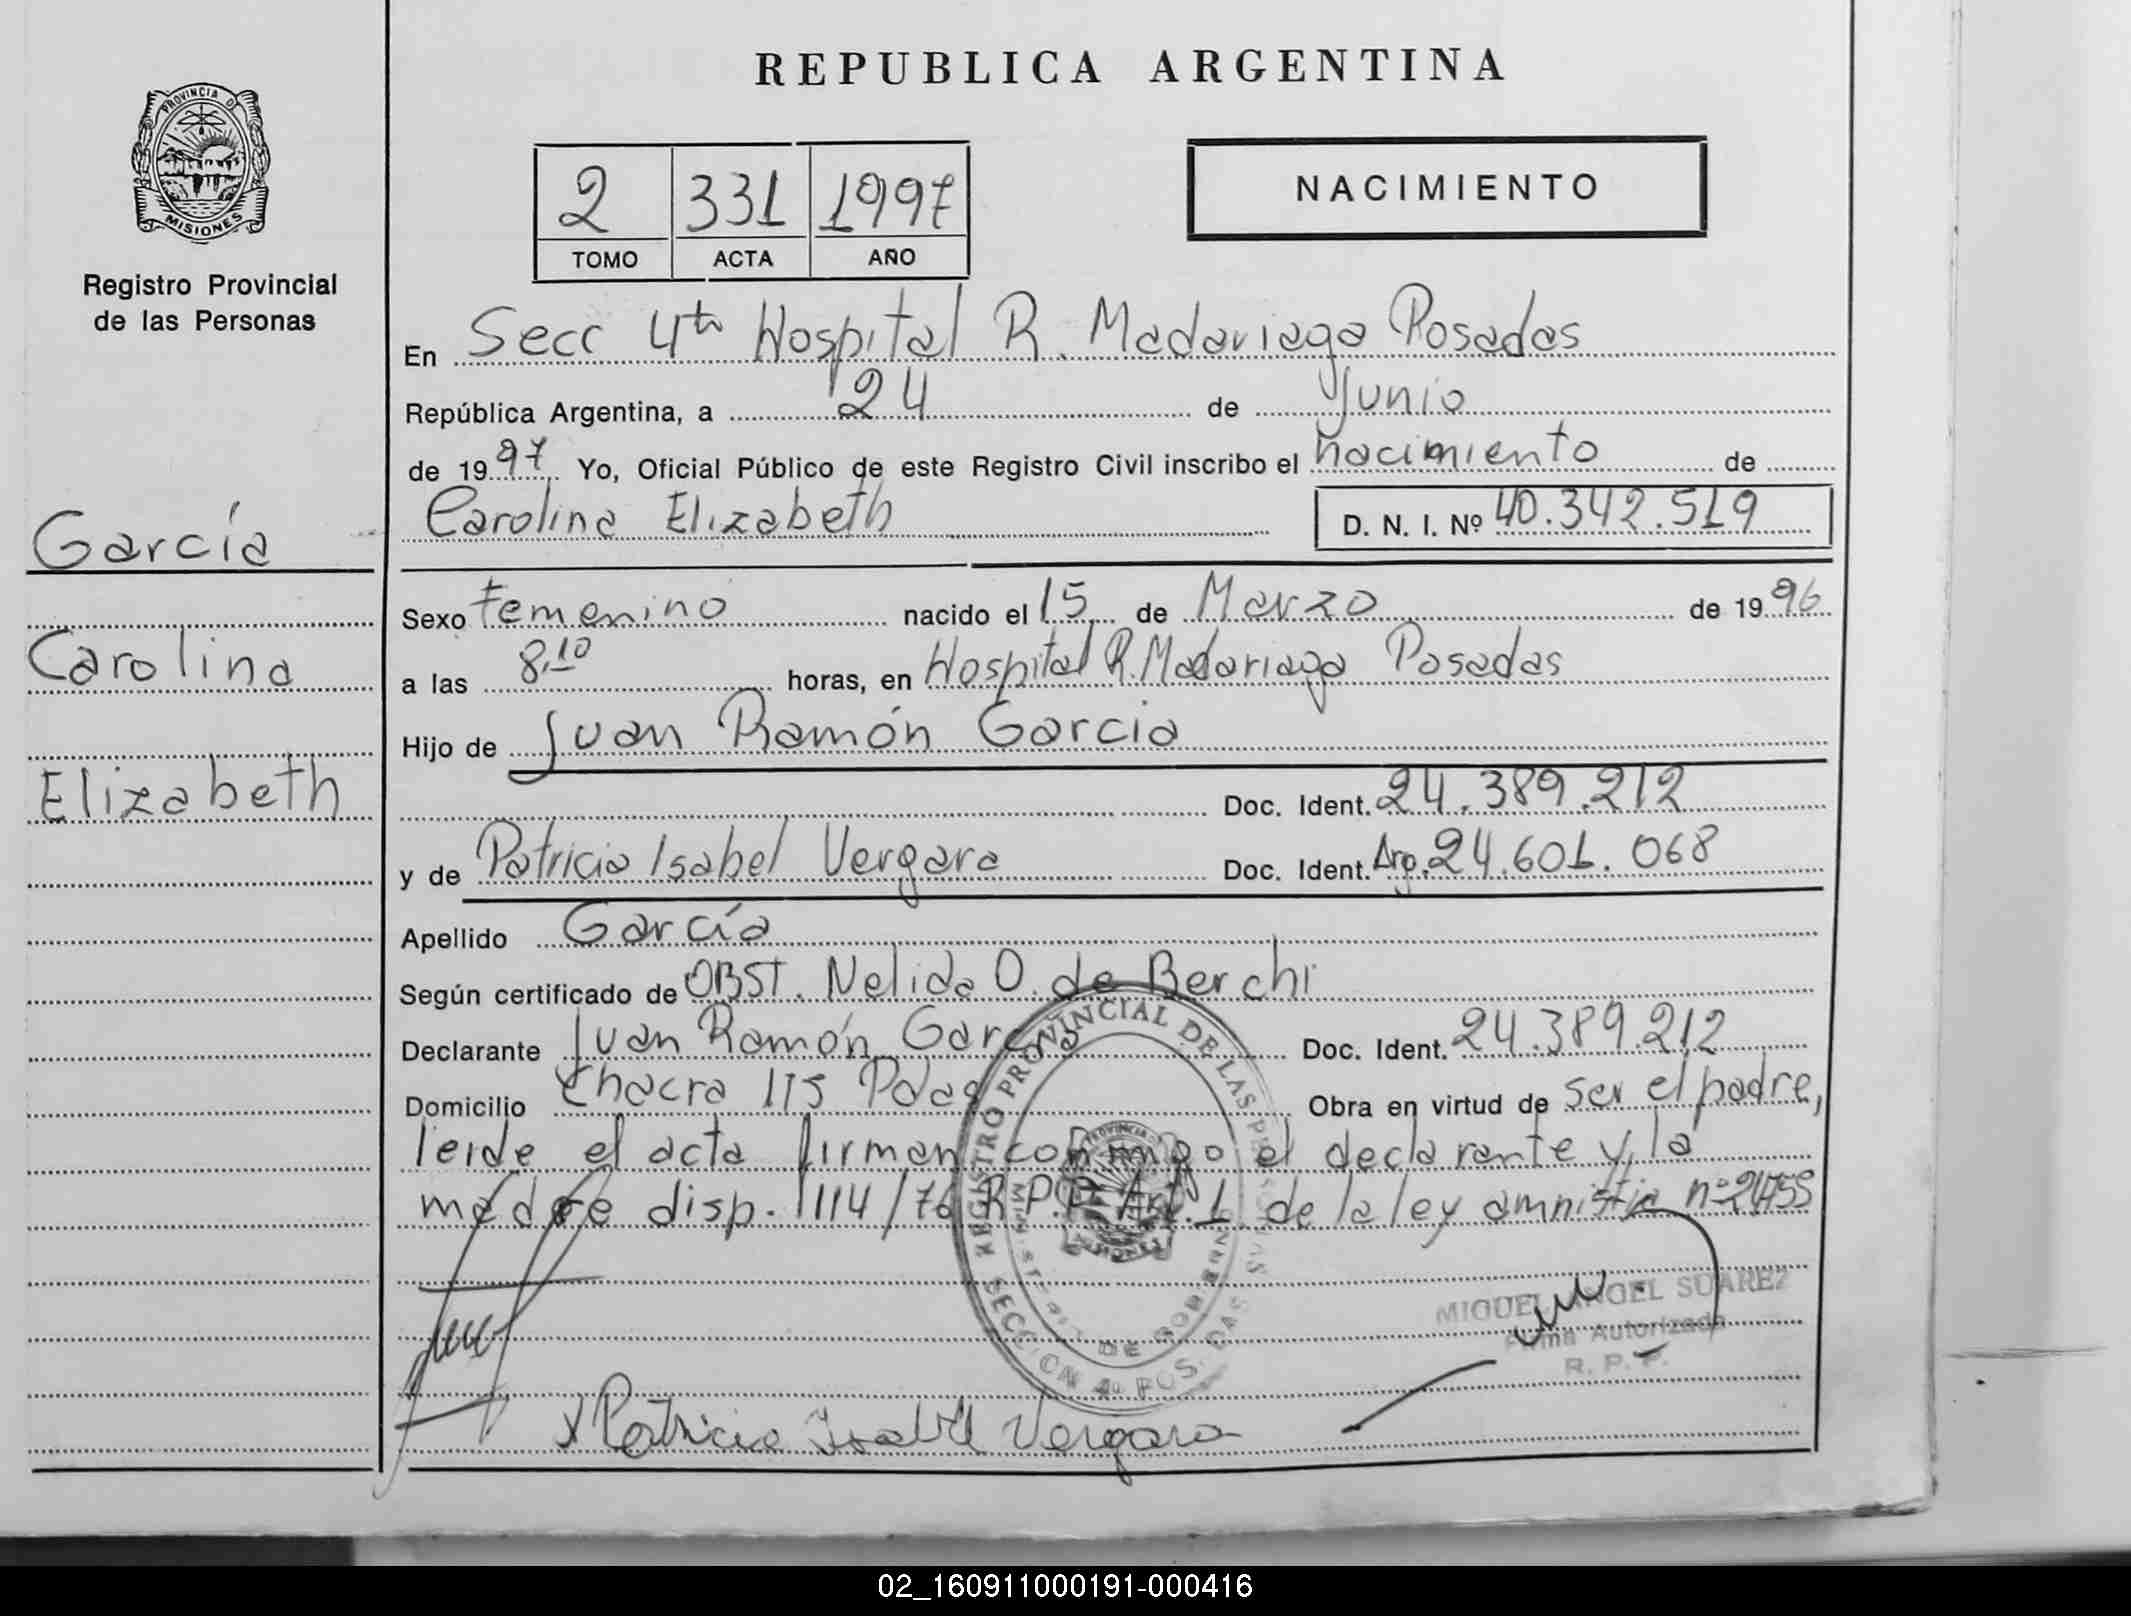 REPUBLICA ARGENTINA
PROVINCIA D
MISIONES
Registro Provincial
de las Personas
2 331 1997
TOMO ACTA AÑO
NACIMIENTO
En Secc 4ta Hospital R. Madariaga Posadas
República Argentina, a 24 de Junio
de 1997. Yo, Oficial Público de este Registro Civil inscribo el nacimiento de
García
Carolina Elizabeth D. N. I. Nº 40.342.519
Sexo femenino nacido el 15 de Marzo de 1996
Carolina
a las 8.10 horas, en Hospital R. Madariaga Posadas
Hijo de Juan Ramón Garcia
Elizabeth
Doc. Ident. 24.389.212
y de Patricia Isabel Vergara Doc. Ident. Arg. 24.601.068
Apellido García
Según certificado de OBST. Nelida O. de Berchi
Declarante Juan Ramón Garcia Doc. Ident. 24.389.212
Domicilio Chacra 115 Pdas Obra en virtud de ser el padre,
leide el acta firman conmigo el declarante y la
madre disp. 1114/76 R.P.P. Art. 1 de la ley amnistia nº 24755
REGISTRO PROVINCIAL DE LAS PERSONAS
SECCION 4a POSADAS
MIGUEL ANGEL SUAREZ
Firma Autorizada
R. P. P.
x Patricia Isabel Vergara
02_160911000191-000416